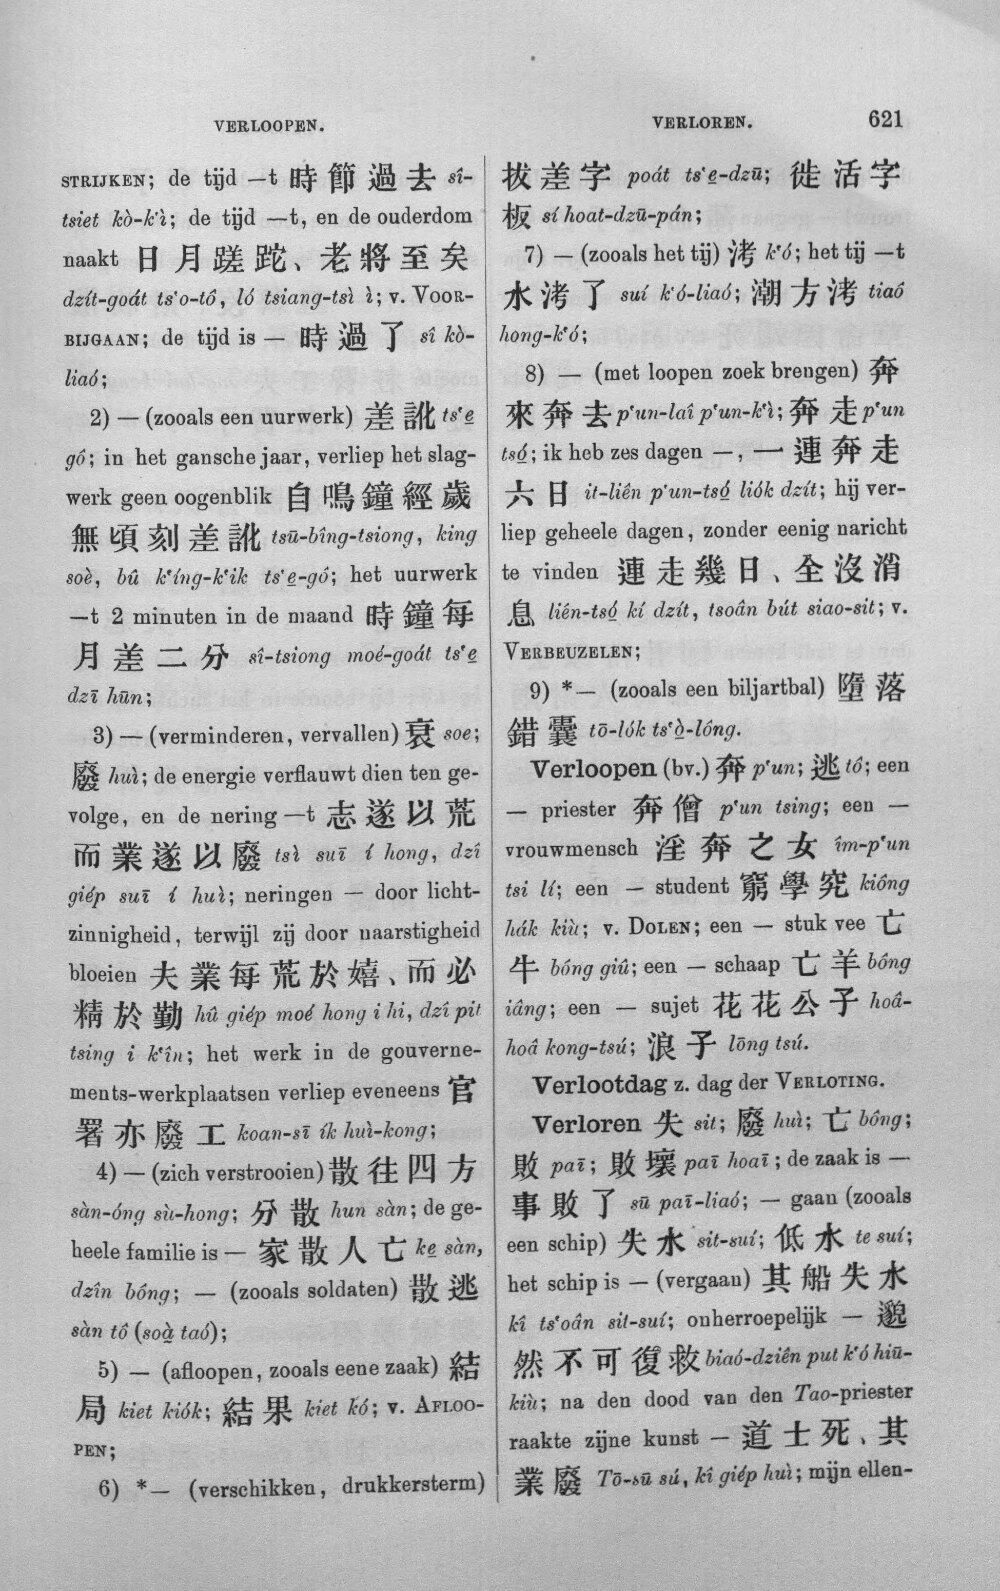 VERLOOPEN.
VERLOREN.
621
STRIJKEN; de tijd —t 時節過去 sî-
tsiet kò-k‘ì; de tijd —t, en de ouderdom
naakt 日月蹉跎、老將至矣
dzít-goát ts‘o-tô, ló tsiang-tsì ì; v. VOOR-
BIJGAAN; de tijd is — 時過了 sî kò-
liaó;
2) — (zooals een uurwerk) 差訛 ts‘e̱
gô; in het gansche jaar, verliep het slag-
werk geen oogenblik 自鳴鐘經歲
無頃刻差訛 tsū-bîng-tsiong, king
soè, bû k‘íng-k‘ik ts‘e̱-gó; het uurwerk
—t 2 minuten in de maand 時鐘每
月差二分 sî-tsiong moé-goát ts‘e̱
dzī hūn;
3) — (verminderen, vervallen) 衰 soe;
廢 huì; de energie verflauwt dien ten ge-
volge, en de nering —t 志遂以荒
而業遂以廢 tsì suī í hong, dzî
giép suī í huì; neringen — door licht-
zinnigheid, terwijl zij door naarstigheid
bloeien 夫業每荒於嬉、而必
精於勤 hû giép moé hong i hi, dzî pit
tsing i k‘în; het werk in de gouverne-
ments-werkplaatsen verliep eveneens 官
署亦廢工 koan-sī ík huì-kong;
4) — (zich verstrooien) 散往四方
sàn-óng sù-hong; 分散 hun sàn; de ge-
heele familie is — 家散人亡 ke̱ sàn,
dzîn bóng; — (zooals soldaten) 散逃
sàn tô (soà̱ taó);
5) — (afloopen, zooals eene zaak) 結
局 kiet kiók; 結果 kiet kó; v. AFLOO-
PEN;
6) *— (verschikken, drukkersterm)
拔差字 poát ts‘e̱-dzū;徙活字
板 sí hoat-dzū-pán;
7) — (zooals het tij) 洘 k‘ó; het tij —t
水洘了 suí k‘ó-liaó; 潮方洘 tiaô
hong-k‘ó;
8) — (met loopen zoek brengen) 奔
來奔去 p‘un-laî p‘un-k‘ì; 奔走 p‘un
tsó̱; ik heb zes dagen —, 一連奔走
六日 it-liên p‘un-tsó̱ liók dzít; hij ver-
liep geheele dagen, zonder eenig naricht
te vinden 連走幾日、全沒消
息 lién-tsó̱ kí dzít, tsoân bút siao-sit; v.
VERBEUZELEN;
9) *— (zooals een biljartbal) 墮落
錯囊 tō-lók ts‘ò̱-lóng.
Verloopen (bv.) 奔 p‘un; 逃 tó; een
— priester 奔僧 p‘un tsing; een —
vrouwmensch 淫奔之女 îm-p‘un
tsi lí; een — student 窮學究 kiông
hák kiù; v. DOLEN; een — stuk vee 亡
牛 bóng giû; een — schaap 亡羊 bóng
iâng; een — sujet 花花公子 hoâ-
hoâ kong-tsú; 浪子 lōng tsú.
Verlootdag z. dag der VERLOTING.
Verloren 失 sit; 廢 huì; 亡 bóng;
敗 paī; 敗壞 paī hoaī; de zaak is —
事敗了 sū paī-liaó; — gaan (zooals
een schip) 失水 sit-suí; 低水 te suí;
het schip is — (vergaan) 其船失水
kî ts‘oân sit-suí; onherroepelijk — 邈
然不可復救 biaó-dziên put k‘ó hiū-
kiù; na den dood van den Tao-priester
raakte zijne kunst — 道士死、其
業廢 Tō-sū sú, kî giép huì; mijn ellen-